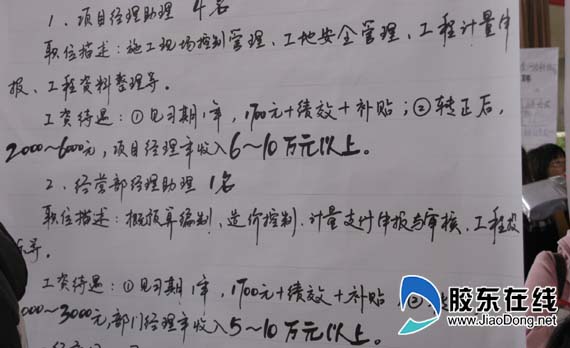 1、项目经理助理 4名
职位描述：施工现场控制管理、工地安全管理、工程计量申
报、工程资料整理等。
工资待遇：①见习期1年，1700元+绩效+补贴；②转正后，
2000~6000元，项目经理年收入6~10万元以上。
2、经营部经理助理 1名
职位描述：概预算编制、造价控制、计量支付申报与审核、工程
等。
工资待遇：①见习期1年，1700元+绩效+补贴
000~3000元，部门经理年收入5~10万元以上。
胶东在线
www.JiaoDong.net